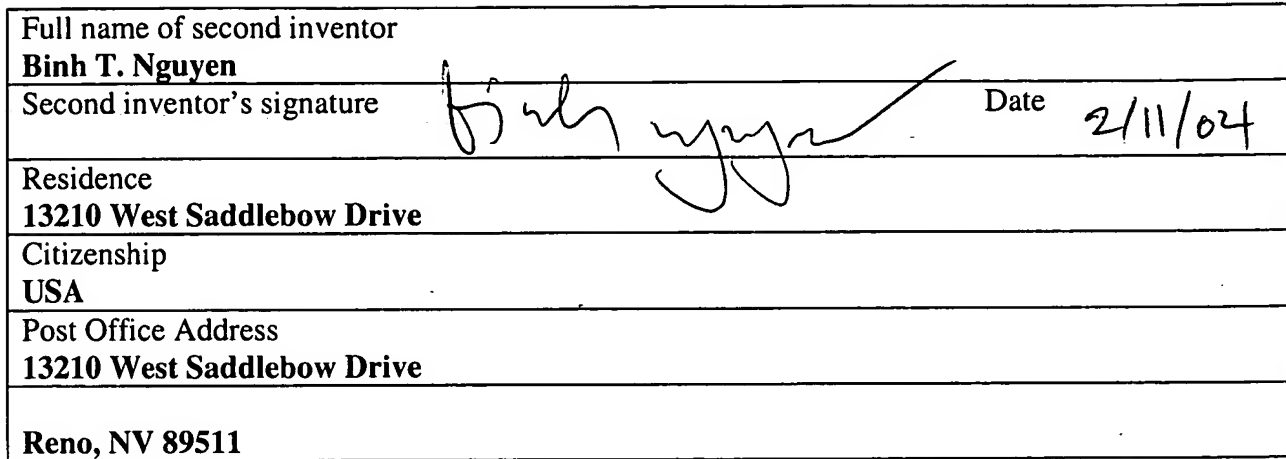 Full name of second inventor
Binh T. Nguyen
Second inventor's signature Binh Nguyen Date 2/11/04
Residence
13210 West Saddlebow Drive
Citizenship
USA
Post Office Address
13210 West Saddlebow Drive
Reno, NV 89511